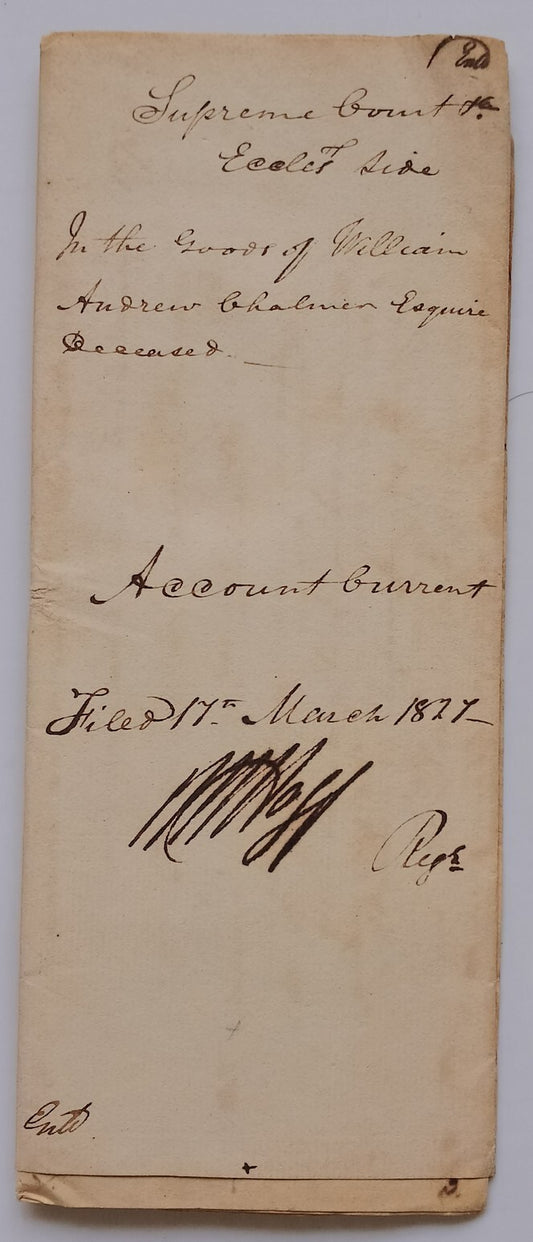 Entd
Supreme Court &c.
Eccles^l Side
In the Goods of William
Andrew Chalmer Esquire
Deceased. —
Account Current
Filed 17th March 1827 —
Regr
Entd